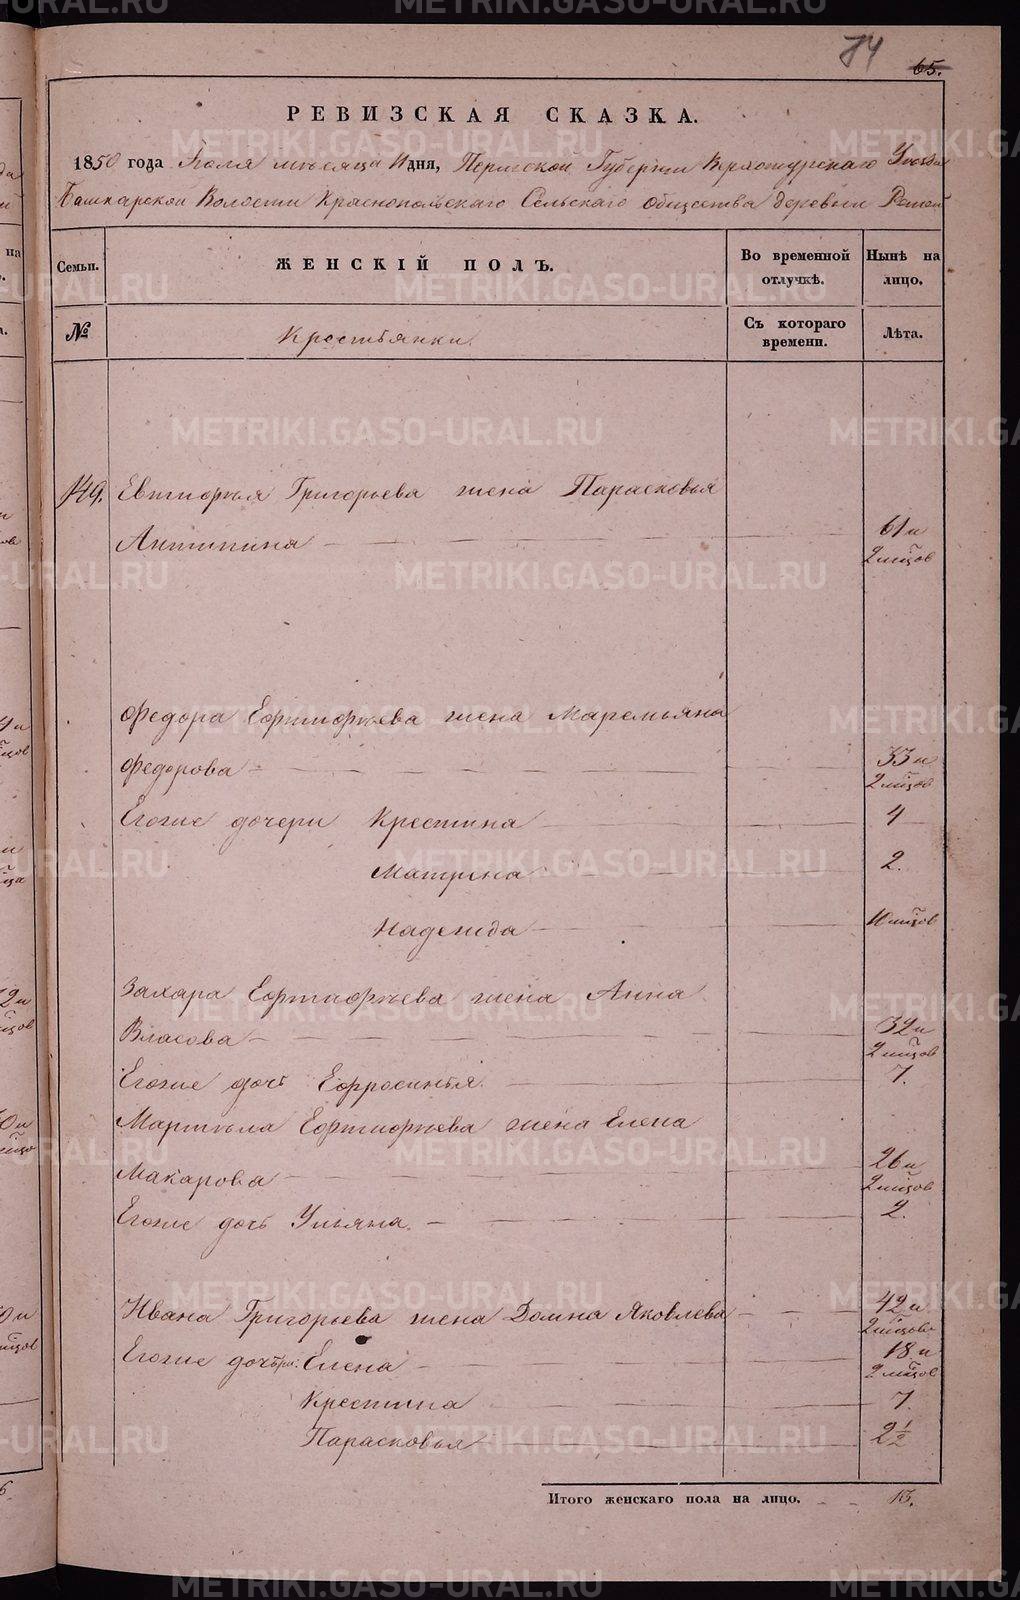 74 65.
РЕВИЗСКАЯ СКАЗКА.
1850 года Июля мѣсяца 11 дня, Пермской Губернiи Верхотурскаго Уѣзда
Башкарской Волости Краснопольскаго Сельскаго общества деревни
Семьи. ЖЕНСКІЙ ПОЛЪ. Во временной отлучкѣ. Нынѣ на лицо.
№ Крестьянки. Съ котораго времени. Лѣта.
149. Евтифья Григорьева жена Парасковья
Антипина 61 и 2 мцов
Федора Ефтифьева жена Маремьяна
Федорова 33 и 2 мцов
Егоже дочери Крестина 4
Матрена 2.
Надежда 10 мцов
Захара Ефтифьева жена Анна
Власова 32 и 2 мцов
Егоже дочь Ефросинья. 7.
Мартъла Ефтифьева жена Елена
Макарова 26 и 2 мцов
Егоже дочь Ульяна. 2.
Ивана Григорьева жена Домна Яковлева 42 и 2 мцов
Егоже дочери: Елена 18 и 2 мцов
Крестина 7.
Парасковья 2 1/2
Итого женскаго пола на лицо. 13.
METRIKI.GASO-URAL.RU